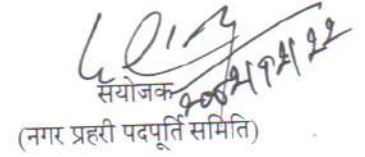 संयोजक
(नगर प्रहरी पदपूर्ति समिति)